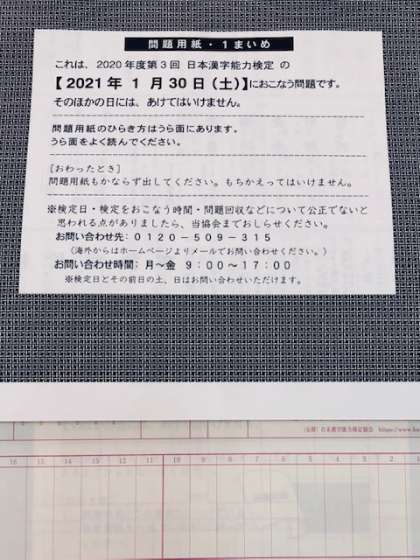 問題用紙・1まいめ
これは、2020年度第3回 日本漢字能力検定 の
【2021年 1月30日(土)】におこなう問題です。
そのほかの日には、あけてはいけません。
問題用紙のひらき方はうら面にあります。
うら面をよく読んでください。
[おわったとき]
問題用紙もかならず出してください。もちかえってはいけません。
※検定日・検定をおこなう時間・問題回収などについて公正でないと
思われる点がありましたら、当協会までおしらせください。
お問い合わせ先：0120-509-315
(海外からはホームページよりメールでお問い合わせください。)
お問い合わせ時間：月～金 9:00～17:00
※検定日とその前日の土、日はお問い合わせいただけます。
日本漢字能力検定協会
16 15 14 13 12 11 10 9 8 7 6 5 4 3 2 1